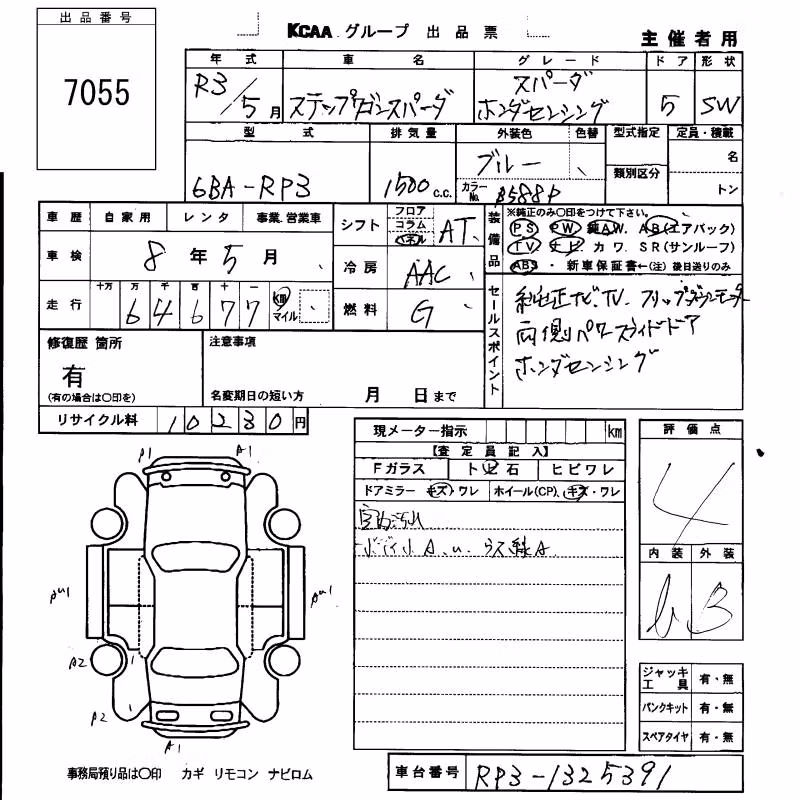 出品番号
7055
KCAA グループ 出品票
主催者用
年式
車名
グレード
ドア
形状
R3/5月
ステップワゴンスパーダ
スパーダ
ホンダセンシング
5
SW
型式
排気量
外装色
色替
型式指定
定員・積載
6BA-RP3
1500c.c.
ブルー
カラーNo. B588P
類別区分
名
トン
車歴
自家用
レンタ
事業.営業車
車検
8年5月
走行
十万 万 千 百 十 一
64677
km
マイル
シフト
フロア
コラム
パネル
AT
冷房
AAC
燃料
G
装備品
※純正のみ〇印をつけて下さい。
PS PW 純AW. AB(エアバック)
TV ナビ カワ. SR(サンルーフ)
ABS・新車保証書←(注)後日送りのみ
セールスポイント
純正ナビ.TV. フリップダウンモニター
両側パワースライドドア
ホンダセンシング
修復歴 箇所
有
(有の場合は〇印を)
注意事項
名変期日の短い方
月 日まで
リサイクル料
10230円
現メーター指示
km
【査定員記入】
Fガラス
トビ石
ヒビワレ
ドアミラー キズ・ワレ
ホイール(CP)、キズ・ワレ
室内汚れ
小 A.u. ラス縁A
評価点
4
内装
外装
b
B
A1
A1
A2
A2
A1
ジャッキ工具
有・無
パンクキット
有・無
スペアタイヤ
有・無
事務局預り品は〇印 カギ リモコン ナビロム
車台番号
RP3-1325391